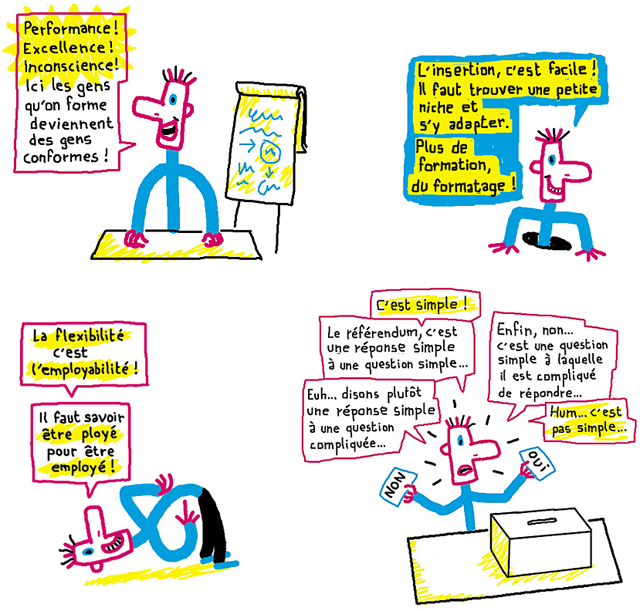 Performance !
Excellence !
Inconscience !
Ici les gens
qu'on forme
deviennent
des gens
conformes !
L'insertion, c'est facile !
Il faut trouver une petite
niche et
s'y adapter.
Plus de
formation,
du formatage !
La flexibilité
c'est
l'employabilité !
Il faut savoir
être ployé
pour être
employé !
C'est simple !
Le référendum, c'est
une réponse simple
à une question simple...
Euh... disons plutôt
une réponse simple
à une question
compliquée...
Enfin, non...
c'est une question
simple à laquelle
il est compliqué
de répondre...
Hum... c'est
pas simple...
NON
OUI